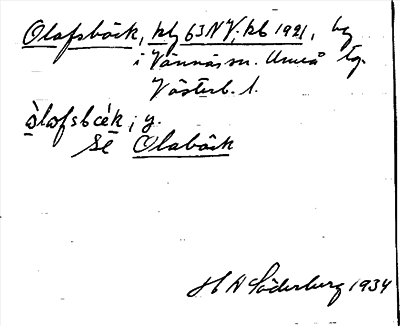 Olofsbäck, kbl 63 NV, kb 1921, by
i Vännäs sn. Umeå tg.
Västerb. l.
òlofsbæ̀k, y.
se Olabäck
H A Söderberg 1934